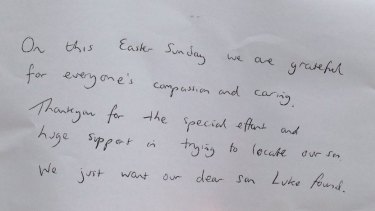 On this Easter Sunday we are grateful
for everyone's compassion and caring.
Thankyou for the special effort and
huge support in trying to locate our son.
We just want our dear son Luke found.